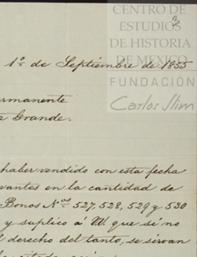 CENTRO DE
ESTUDIOS
DE HISTORIA
DE MÉXICO
FUNDACIÓN
Carlos Slim
1º de Septiembre de 1855
rmanente
Grande.
haber vendido con esta fecha
vantes en la cantidad de
Bonos Nos 527, 528, 529 y 530
y suplico á VV que si no
l derecho del tanto, se sirvan